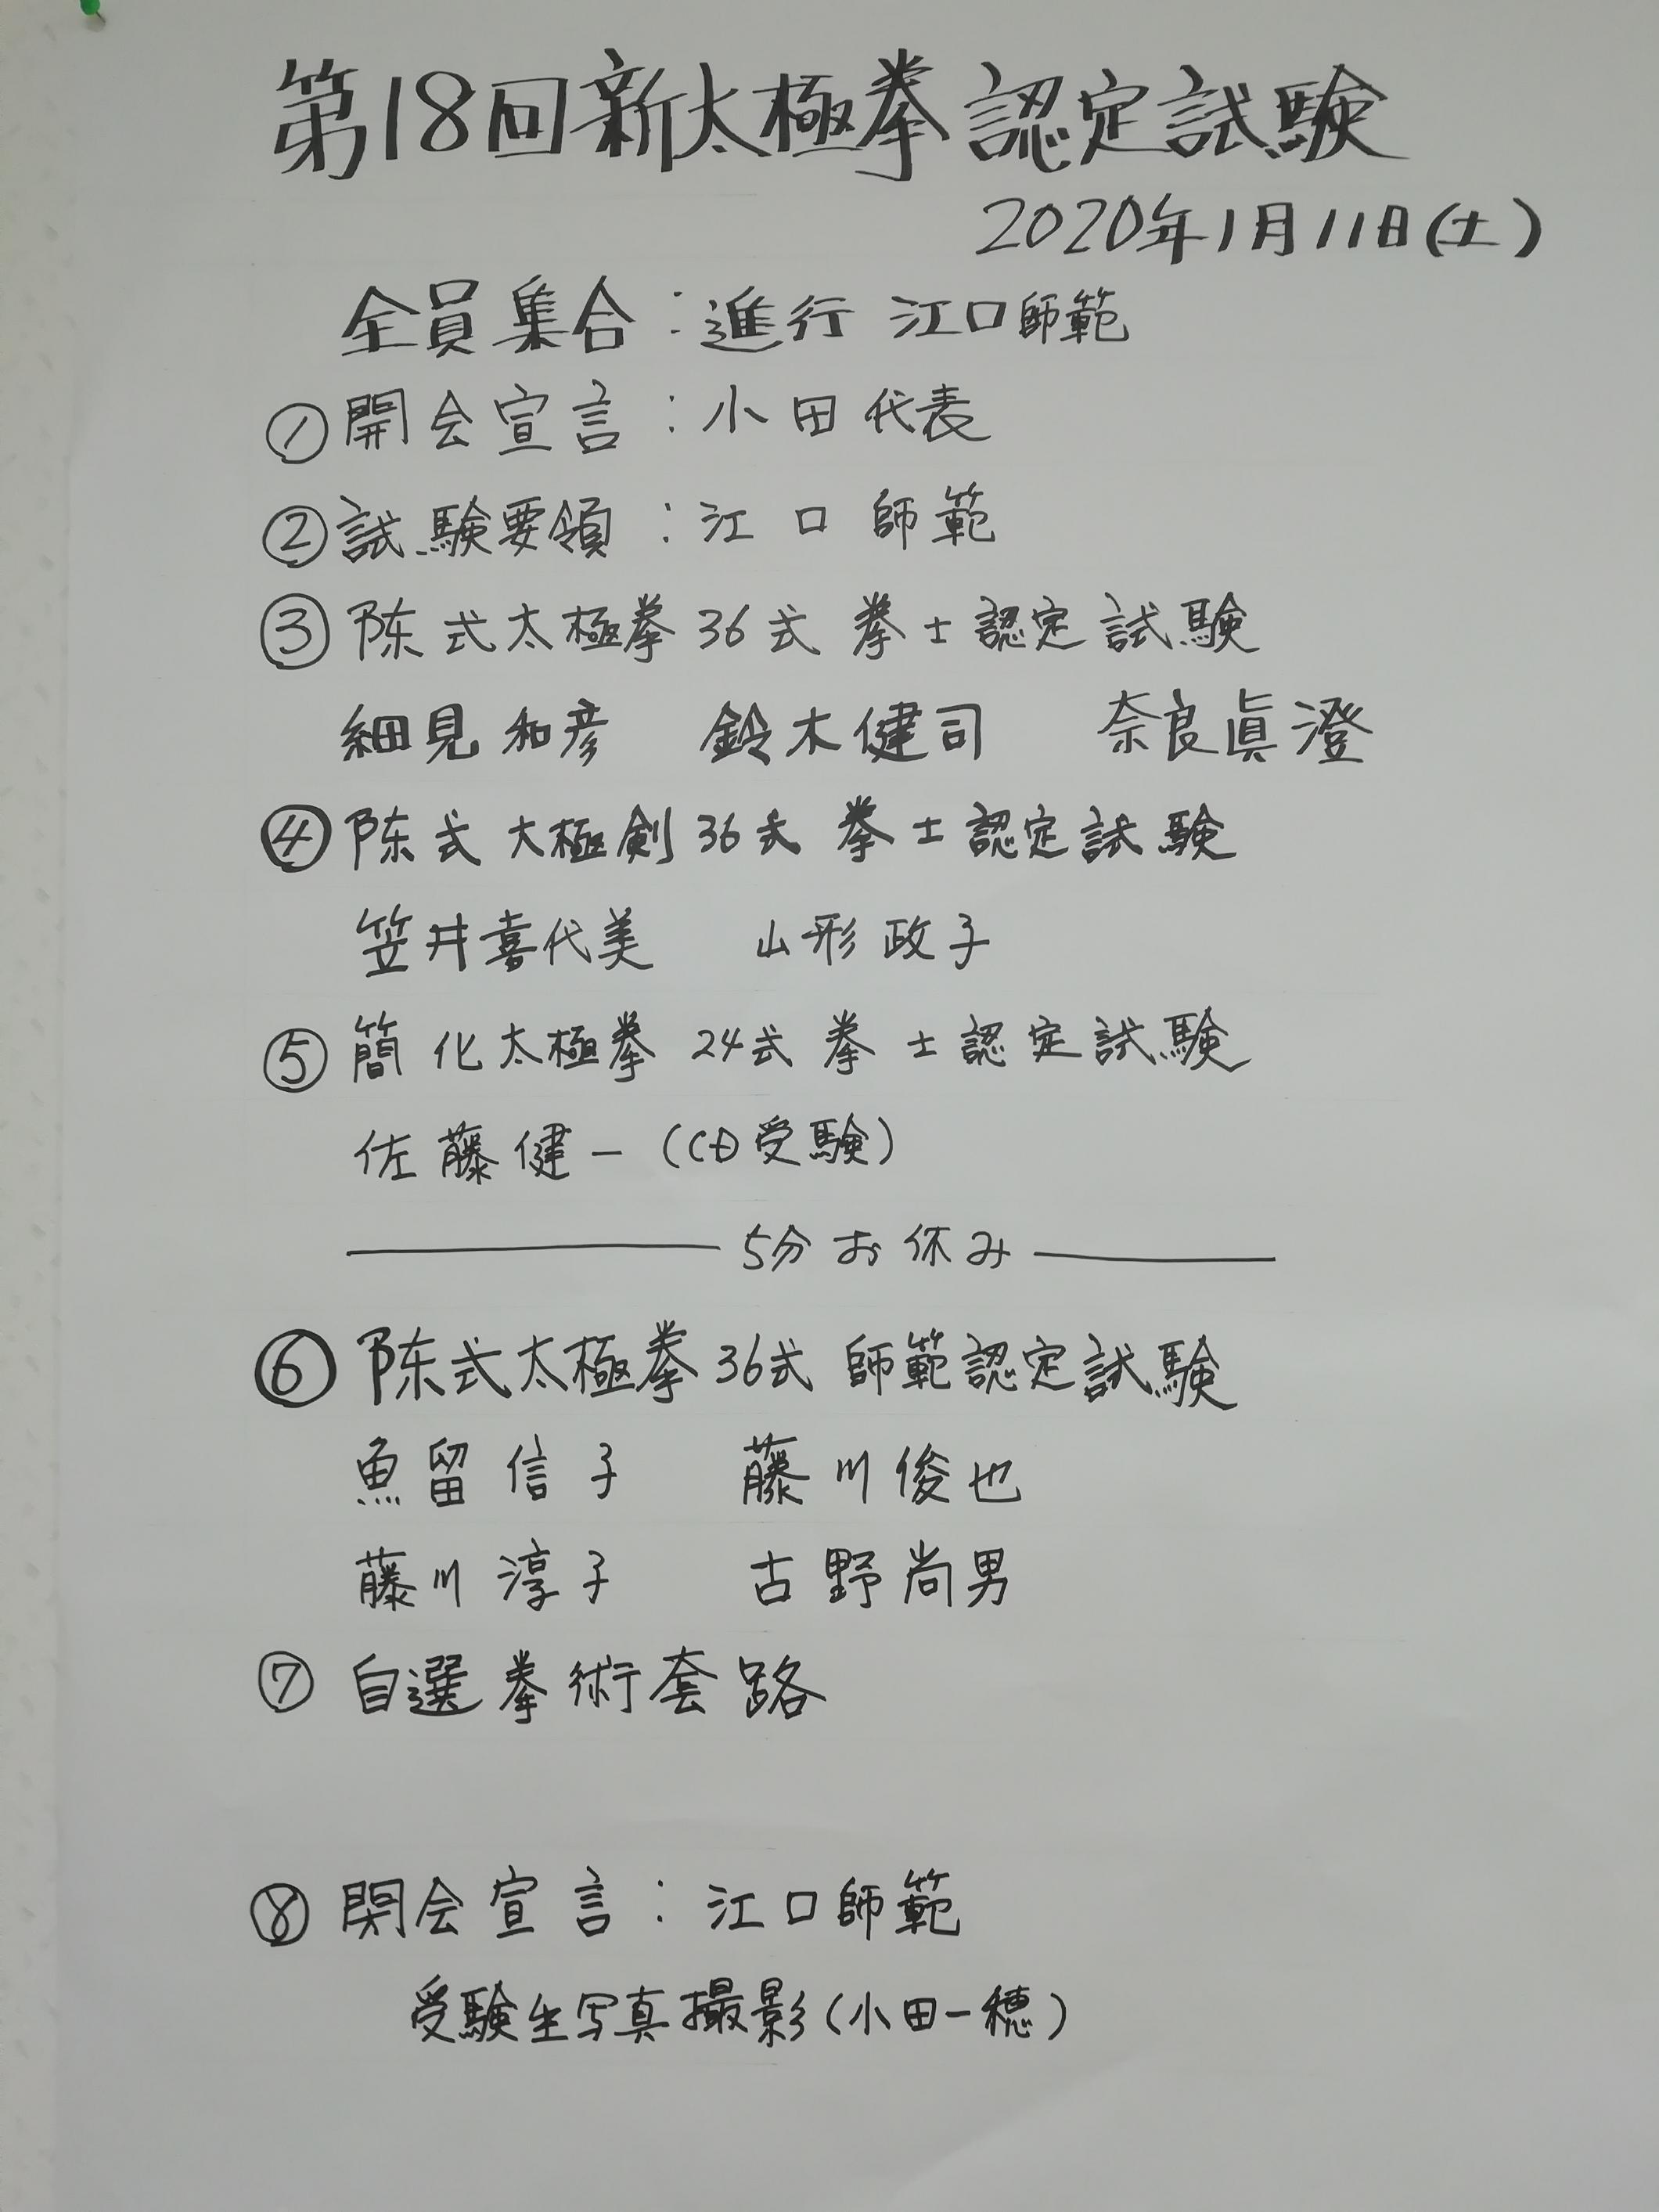 第18回新太極拳認定試験
2020年1月11日(土)
全員集合:進行 江口師範
①開会宣言:小田代表
②試験要領:江口師範
③陈式太極拳36式 拳士認定試験
細見和彦 鈴木健司 奈良眞澄
④陈式太極剣36式 拳士認定試験
笠井喜代美 山形政子
⑤簡化太極拳24式 拳士認定試験
佐藤健一(CD受験)
5分お休み
⑥陈式太極拳36式 師範認定試験
魚留信子 藤川俊也
藤川淳子 古野尚男
⑦自選拳術套路
⑧閉会宣言:江口師範
受験生写真撮影(小田一穂)